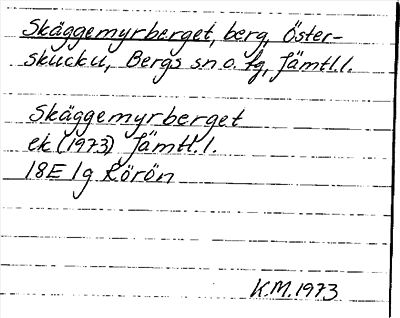 Skäggemyrberget, berg, Öster-
skucku, Bergs sn o. tg, Jämtl.l.
Skäggemyrberget
ek (1973) Jämtl.l.
18E 1g Rörön
K.M. 1973